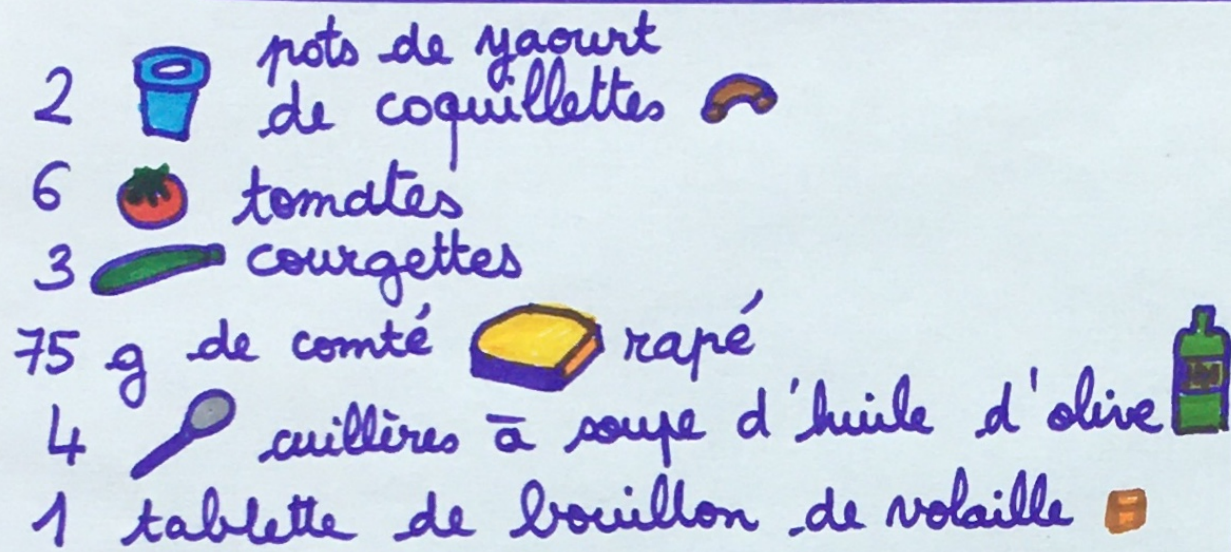 pots de yaourt
2 de coquillettes
6 tomates
3 courgettes
75 g de comté rapé
4 cuillères à soupe d'huile d'olive
1 tablette de bouillon de volaille